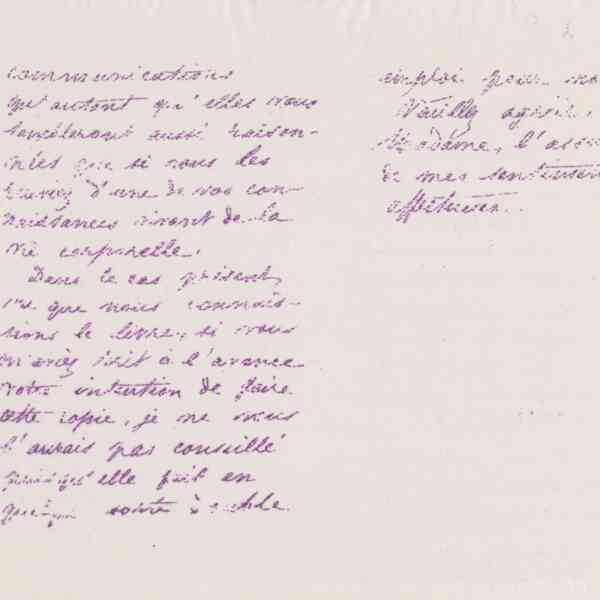 communications
qu'autant qu'elles vous
sembleront aussi raison-
nées que si vous les
d'une de vos con-
naissances vivant de la
vie corporelle.
Dans le cas présent,
que nous connais-
sions le livre, si vous
aviez écrit à l'avance
votre intention de faire
cette copie, je ne vous
l'aurais pas conseillé
elle fait en
sorte
emploi pour
Veuillez agréer,
Madame, l'assu
de mes sentiments
affectueux.